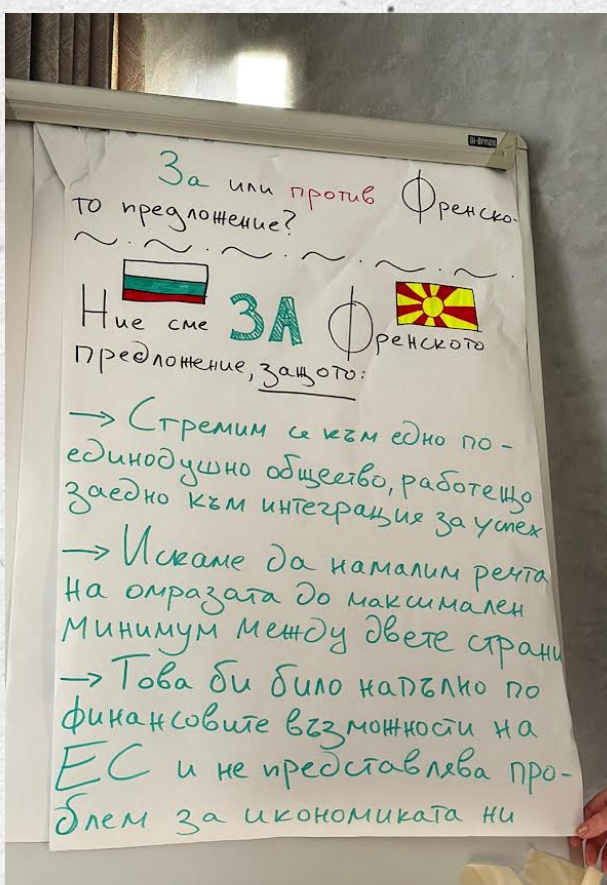 За или против Френско-
то предложение?
Ние сме ЗА Френското
предложение, защото:
→ Стремим се към едно по-
единодушно общество, работещо
заедно към интеграция за успех
→ Искаме да намалим речта
на омразата до максимален
минимум между двете страни
→ Това би било напълно по
финансовите възможности на
ЕС и не представлява про-
блем за икономиката ни